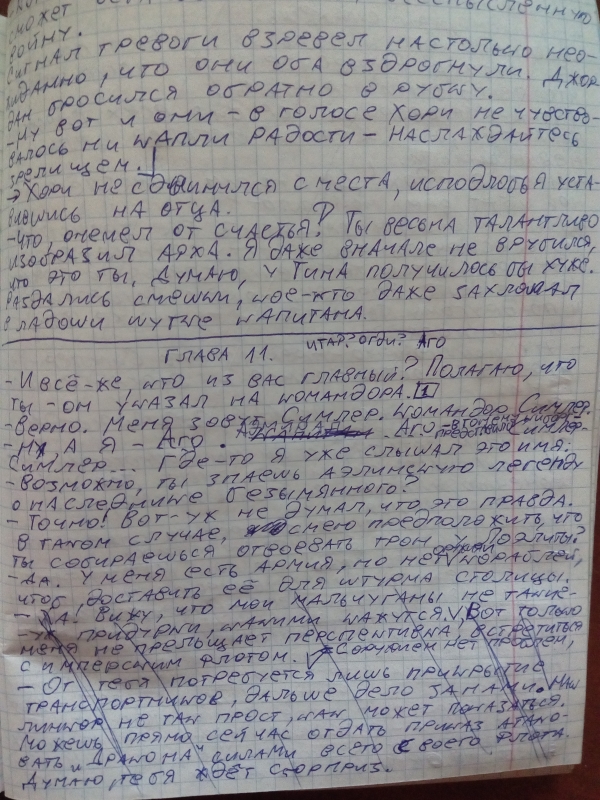 может
войну.
Сигнал тревоги взревел настолько нео-
жиданно, что они оба вздрогнули. Джор
дан бросился обратно в рубку.
-Ну вот и они - в голосе Хори не чувство-
валось ни капли радости - наслаждайтесь
зрелищем.
→ Хори не сдвинулся с места, исподлобья уста-
вившись на отца.
-Что, онемел от счастья? Ты весьма талантливо
изобразил Арха. Я даже вначале не врубился,
что это ты, думаю, у Тина получилось бы хуже.
Раздались смешки, кое-кто даже захлопал
в ладоши шутке капитана.
Глава 11. Итар? Огди? Аго
-И всё-же, кто из вас главный? Полагаю, что
ты - он указал на командора. 1
-Верно. Меня зовут Симлер. Командор Симлер.
-Н, а я - Аго. Аго
Симлер... Где-то я уже слышал это имя.
-Возможно, ты знаешь аэлинскую легенду
о наследнике безымянного?
-Точно! Вот-уж не думал, что это правда.
в таком случае, смею предположить, что
ты собираешься отвоевать трон у
-Да. У меня есть армия, но нет кораблей,
чтоб доставить её для штурма столицы.
- Вижу, что мои мальчуганы не такие-
-уж придурки, какими кажутся. Вот только
меня не прельщает перспектива, встретиться
с имперским флотом. нет проблем,
- От тебя потребуется лишь прикрытие
транспортников, дальше дело за нами. Наш
линкор не так прост, как может показаться.
Можешь прямо сейчас отдать приказ атако-
вать „Дракона" силами всего своего флота.
Думаю, тебя ждёт сюрприз.